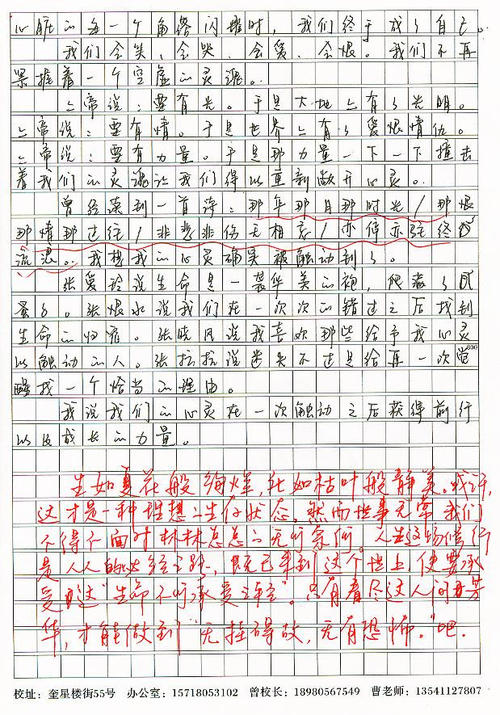 心脏的每一个角落闪耀时，我们终于成了自己。
我们会笑，会哭，会爱，会恨。我们不再
裹挟着一个空虚的灵魂。
上帝说：要有光。于是大地上有了光明。
上帝说：要有情。于是世界上有了爱恨情仇。
上帝说：要有力量。于是那力量一下一下撞击
着我们的灵魂让我们得以重新敞开心灵。
曾经读到一首诗：那年那月那时光/那恨
那情那过往/非悲非伤无相忘/亦停亦驻终
流浪。我想我的心灵确实被触动到了。
张爱玲说生命是一袭华美的袍，爬满了虱
蚤了。张恨水说我们在一次次的错过之后找到
生命的归宿。张晓风说我喜欢那些给予我心灵
以触动的人。张抗抗说迷失不过是给再一次
找一个恰当的理由。
我说我们的心灵在一次触动之后获得前行
以及成长的力量。
生如夏花般绚烂，死如枯叶般静美。或许，
这才是一种理想的生存状态，然而世事无常我们
不得不面对林林总总的无可奈何。人生这场修行
是人人的必经之路，既已来到这个世上，便要承
受起这“生命不可承受之轻”。只有看尽这人间芳
华，才能做到“无挂碍故，无有恐怖。”吧.
校址：奎星楼街55号 办公室：15718053102 曾校长：18980567549 曹老师：13541127807